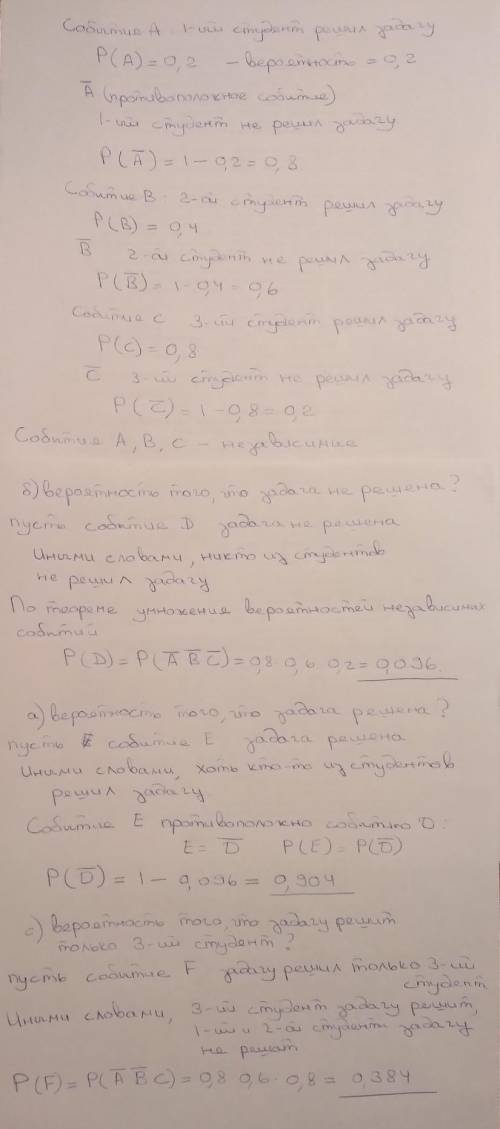 Событие A : 1-ый студент решил задачу
P(A) = 0,2 – вероятность = 0,2
A̅ (противоположное событие)
1-ый студент не решил задачу
P(A̅) = 1 – 0,2 = 0,8
Событие B : 2-ой студент решил задачу
P(B) = 0,4
B̅ 2-ой студент не решил задачу
P(B̅) = 1 – 0,4 = 0,6
Событие C 3-ий студент решил задачу
P(C) = 0,8
C̅ 3-ий студент не решил задачу
P(C̅) = 1 – 0,8 = 0,2
События A, B, C – независимые
б) вероятность того, что задача не решена?
пусть событие D задача не решена
Иными словами, никто из студентов
не решил задачу
По теореме умножения вероятностей независимых
событий
P(D) = P(A̅ B̅ C̅) = 0,8 0,6 0,2 = 0,096.
а) вероятность того, что задача решена?
пусть событие E задача решена
Иными словами, хоть кто-то из студентов
решил задачу.
Событие E противоположно событию D:
E = D̅ P(E) = P(D̅)
P(D̅) = 1 – 0,096 = 0,904
с) вероятность того, что задачу решит
только 3-ий студент?
пусть событие F задачу решил только 3-ий
студент
Иными словами, 3-ий студент задачу решит,
1-ый и 2-ой студент задачу
не решат
P(F) = P(A̅ B̅ C) = 0,8 0,6 · 0,8 = 0,384